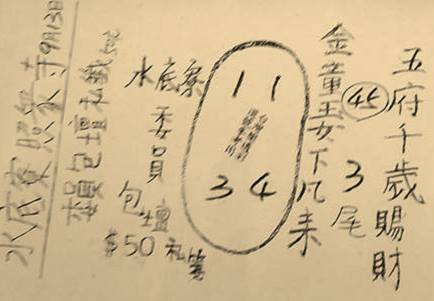 五府千歲賜財
45 3尾
金童玉女下凡來
11
34
水底寮委員
包壇私籤
$50
賴包壇私籤
水底寮照鏡寺9月13日